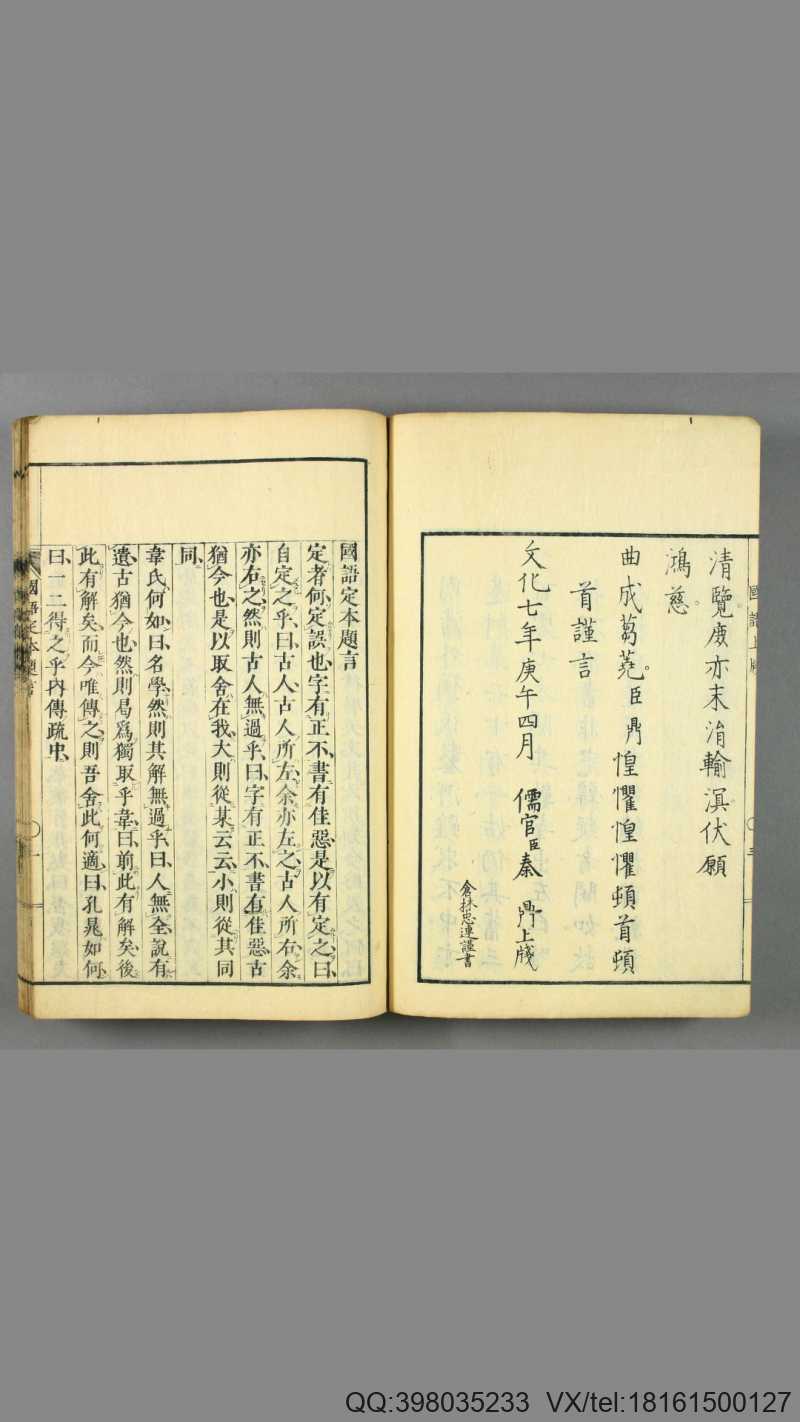 清覽庶亦末涓輸溟伏願
鴻慈
曲成蒭蕘臣鼎惶懼惶懼頓首頓
首謹言
文化七年庚午四月 儒官臣秦 鼎上牋
倉林忠連謹書
國語定本題言
定者何定誤也字有正不書有佳惡是以有定之曰
自定之乎曰古人古人所左余亦左之古人所右余
亦右之然則古人無過乎曰字有正不書有佳惡古
猶今也是以取舍在我大則從某云云小則從其同
同
韋氏何如曰名學然則其解無過乎曰人無全說有
遺古猶今也然則曷爲獨取乎韋曰前此有解矣後
此有解矣而今唯傳之則吾舍此何適曰孔晁如何
曰一二得之乎內傳疏中
國語定本題言
一
QQ:398035233 VX/tel:18161500127